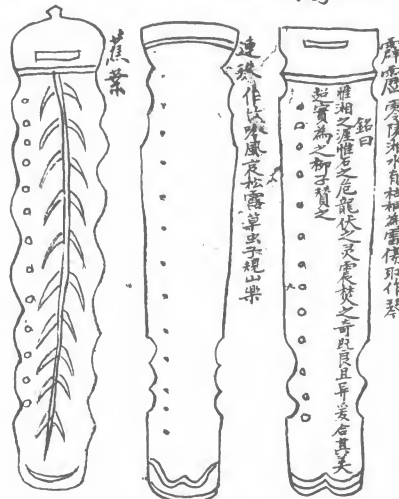 霹靂 零陵湘水自枯桐為雷傷取作琴
銘曰
惟湘之涯惟石之危龍伏之灵震焚之奇既良且异爰合其美
超實為之柳子贊之
連珠 作 風哀松露草虫子規山樂
蕉葉